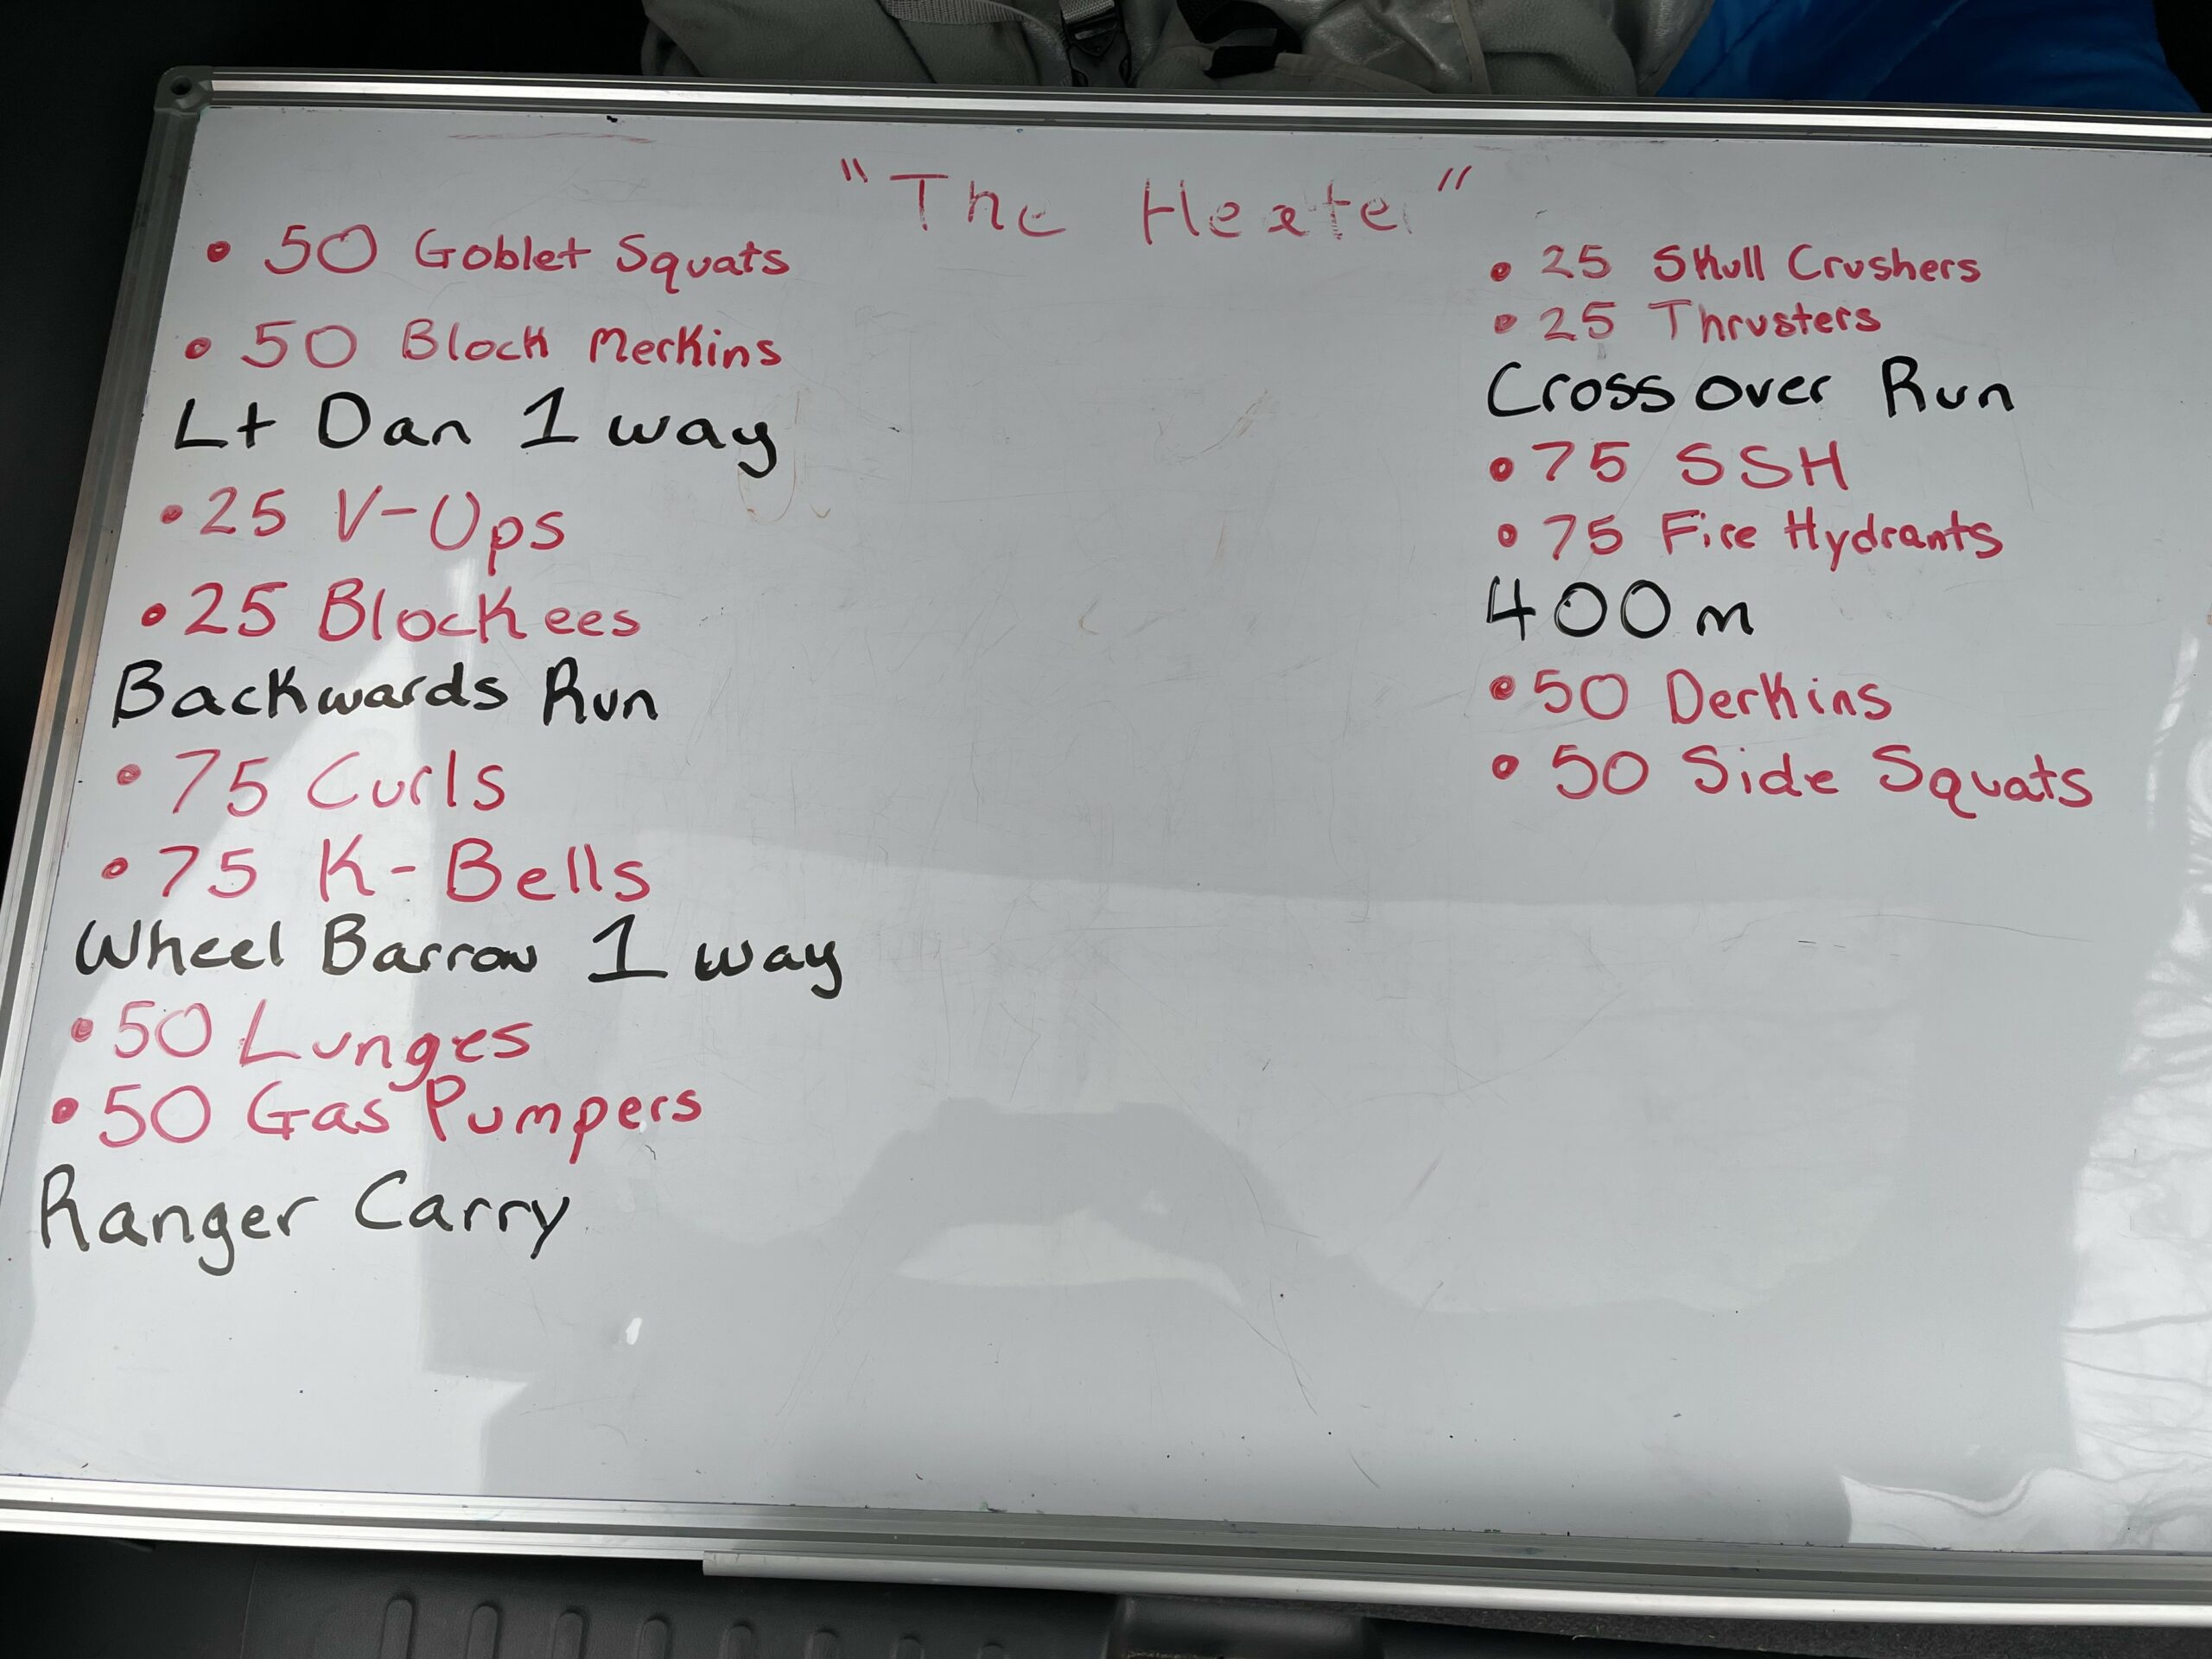 "The Heater"
• 50 Goblet Squats
• 50 Block Merkins
Lt Dan 1 way
• 25 V-Ups
• 25 Blockees
Backwards Run
• 75 Curls
• 75 K-Bells
Wheel Barrow 1 way
• 50 Lunges
• 50 Gas Pumpers
Ranger Carry
• 25 Skull Crushers
• 25 Thrusters
Cross over Run
• 75 SSH
• 75 Fire Hydrants
400m
• 50 Derkins
• 50 Side Squats